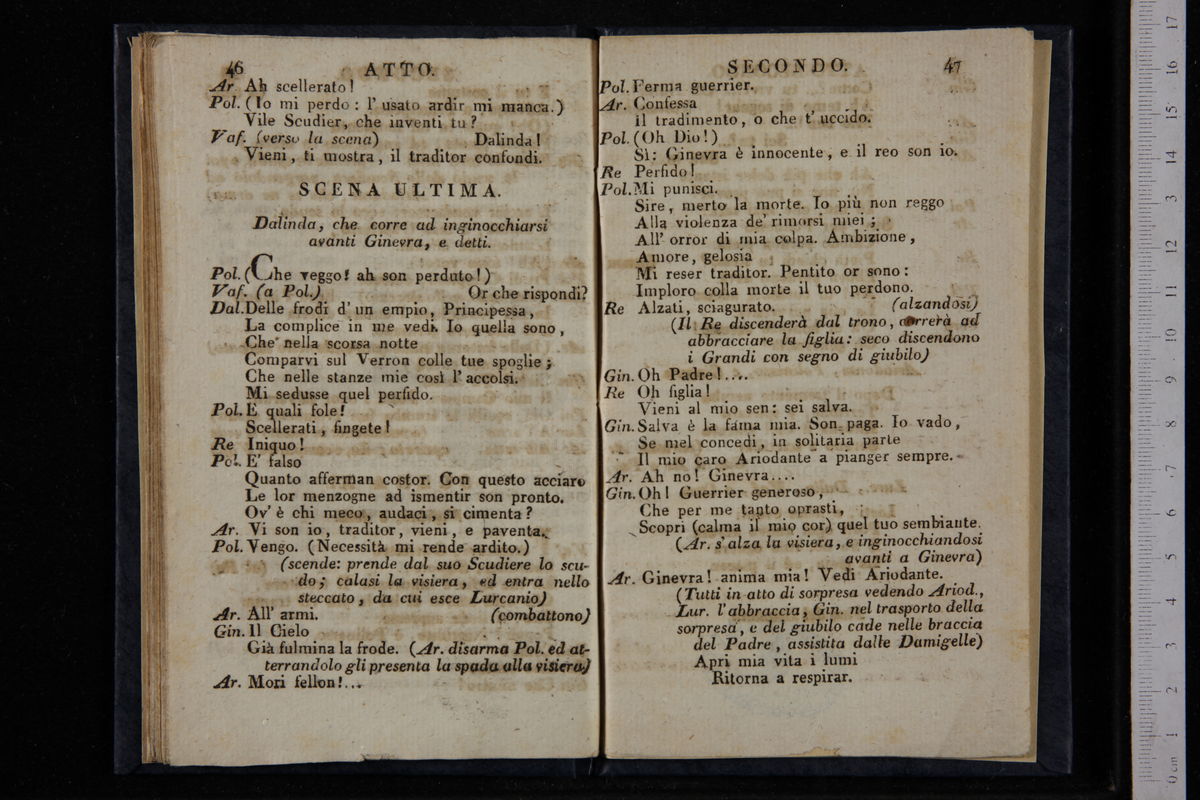 46 ATTO.
Ar Ah scellerato!
Pol. (Io mi perdo: l' usato ardir mi manca.)
Vile Scudier, che inventi tu?
Vaf. (verso la scena) Dalinda!
Vieni, ti mostra, il traditor confondi.
SCENA ULTIMA.
Dalinda, che corre ad inginocchiarsi
avanti Ginevra, e detti.
Pol. (Che veggo! ah son perduto!)
Vaf. (a Pol.) Or che rispondi?
Dal. Delle frodi d' un empio, Principessa,
La complice in me vedi. Io quella sono,
Che nella scorsa notte
Comparvi sul Verron colle tue spoglie;
Che nelle stanze mie così l' accolsi.
Mi sedusse quel perfido.
Pol. E quali fole!
Scellerati, fingete!
Re Iniquo!
Pol. E' falso
Quanto afferman costor. Con questo acciaro
Le lor menzogne ad ismentir son pronto.
Ov' è chi meco, audaci, si cimenta?
Ar. Vi son io, traditor, vieni, e paventa.
Pol. Vengo. (Necessità mi rende ardito.)
(scende: prende dal suo Scudiere lo scu-
do; calasi la visiera, ed entra nello
steccato, da cui esce Lurcanio)
Ar. All' armi. (combattono)
Gin. Il Cielo
Già fulmina la frode. (Ar. disarma Pol. ed at-
terrandolo gli presenta la spada alla visiera)
Ar. Mori fellon!...
SECONDO. 47
Pol. Ferma guerrier.
Ar. Confessa
il tradimento, o che t' uccido.
Pol. (Oh Dio!)
Sì: Ginevra è innocente, e il reo son io.
Re Perfido!
Pol. Mi punisci.
Sire, merto la morte. Io più non reggo
Alla violenza de' rimorsi miei;
All' orror di mia colpa. Ambizione,
Amore, gelosia
Mi reser traditor. Pentito or sono:
Imploro colla morte il tuo perdono.
Re Alzati, sciagurato. (alzandosi)
(Il Re discenderà dal trono, correrà ad
abbracciare la figlia: seco discendono
i Grandi con segno di giubilo)
Gin. Oh Padre!....
Re Oh figlia!
Vieni al mio sen: sei salva.
Gin. Salva è la fama mia. Son paga. Io vado,
Se mel concedi, in solitaria parte
Il mio caro Ariodante a pianger sempre.
Ar. Ah no! Ginevra....
Gin. Oh! Guerrier generoso,
Che per me tanto oprasti,
Scopri (calma il mio cor) quel tuo sembiante.
(Ar. s' alza la visiera, e inginocchiandosi
avanti a Ginevra)
Ar. Ginevra! anima mia! Vedi Ariodante.
(Tutti in atto di sorpresa vedendo Ariod.,
Lur. l' abbraccia, Gin. nel trasporto della
sorpresa, e del giubilo cade nelle braccia
del Padre, assistita dalle Damigelle)
Apri mia vita i lumi
Ritorna a respirar.
0 cm 1 2 3 4 5 6 7 8 9 10 11 12 3 14 15 16 17